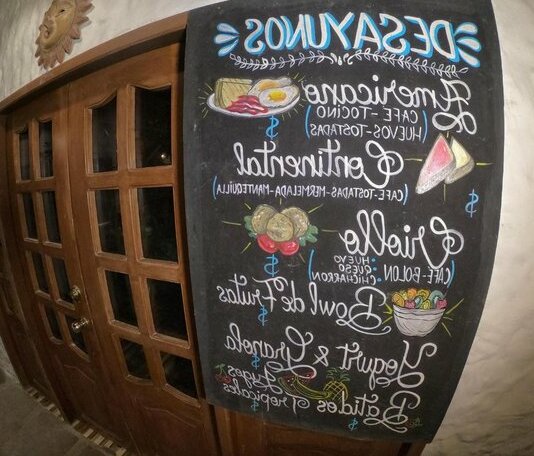 DESAYUNOS
Americano
CAFE-TOCINO
(HUEVOS-TOSTADAS)
$
Continental
(CAFE-TOSTADAS-MERMELADA-MANTEQUILLA)
$
Criollo
(CAFE-BOLON: HUEVO
QUESO
CHICHARRON)
$
Bowl de Frutas
$
Yogurt & Granola
$
Jugos
Batidos Tropicales
$
$